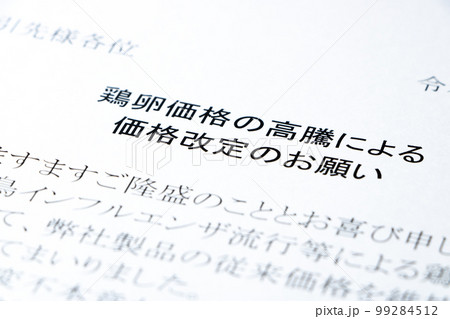 引先様各位
令
鶏卵価格の高騰による
価格改定のお願い
ますますご隆盛のこととお喜び申し
鳥インフルエンザ流行等による鶏
て、弊社製品の従来価格を維
てまいりました。
PIXTA
pixta.jp - 99284512